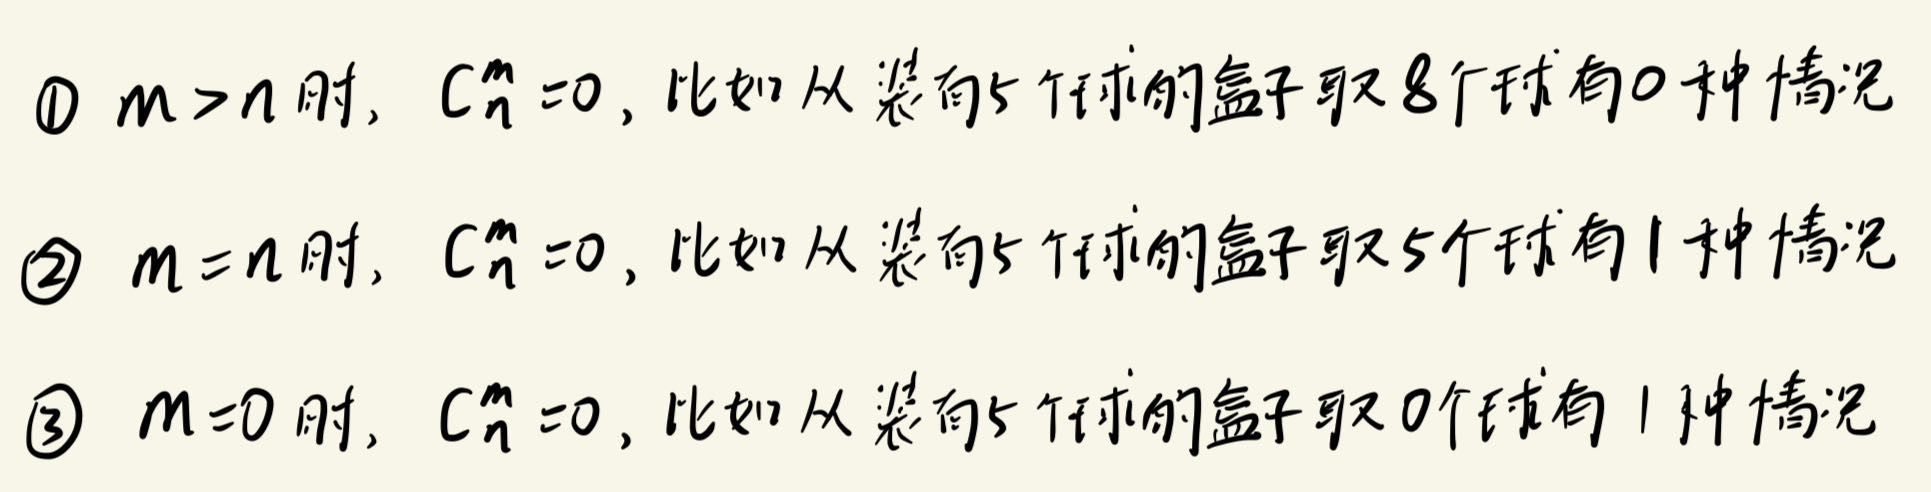 ① m>n时, Cₙᵐ=0, 比如从装有5个球的盒子取8个球有0种情况
② m=n时, Cₙᵐ=0, 比如从装有5个球的盒子取5个球有1种情况
③ m=0时, Cₙᵐ=0, 比如从装有5个球的盒子取0个球有1种情况